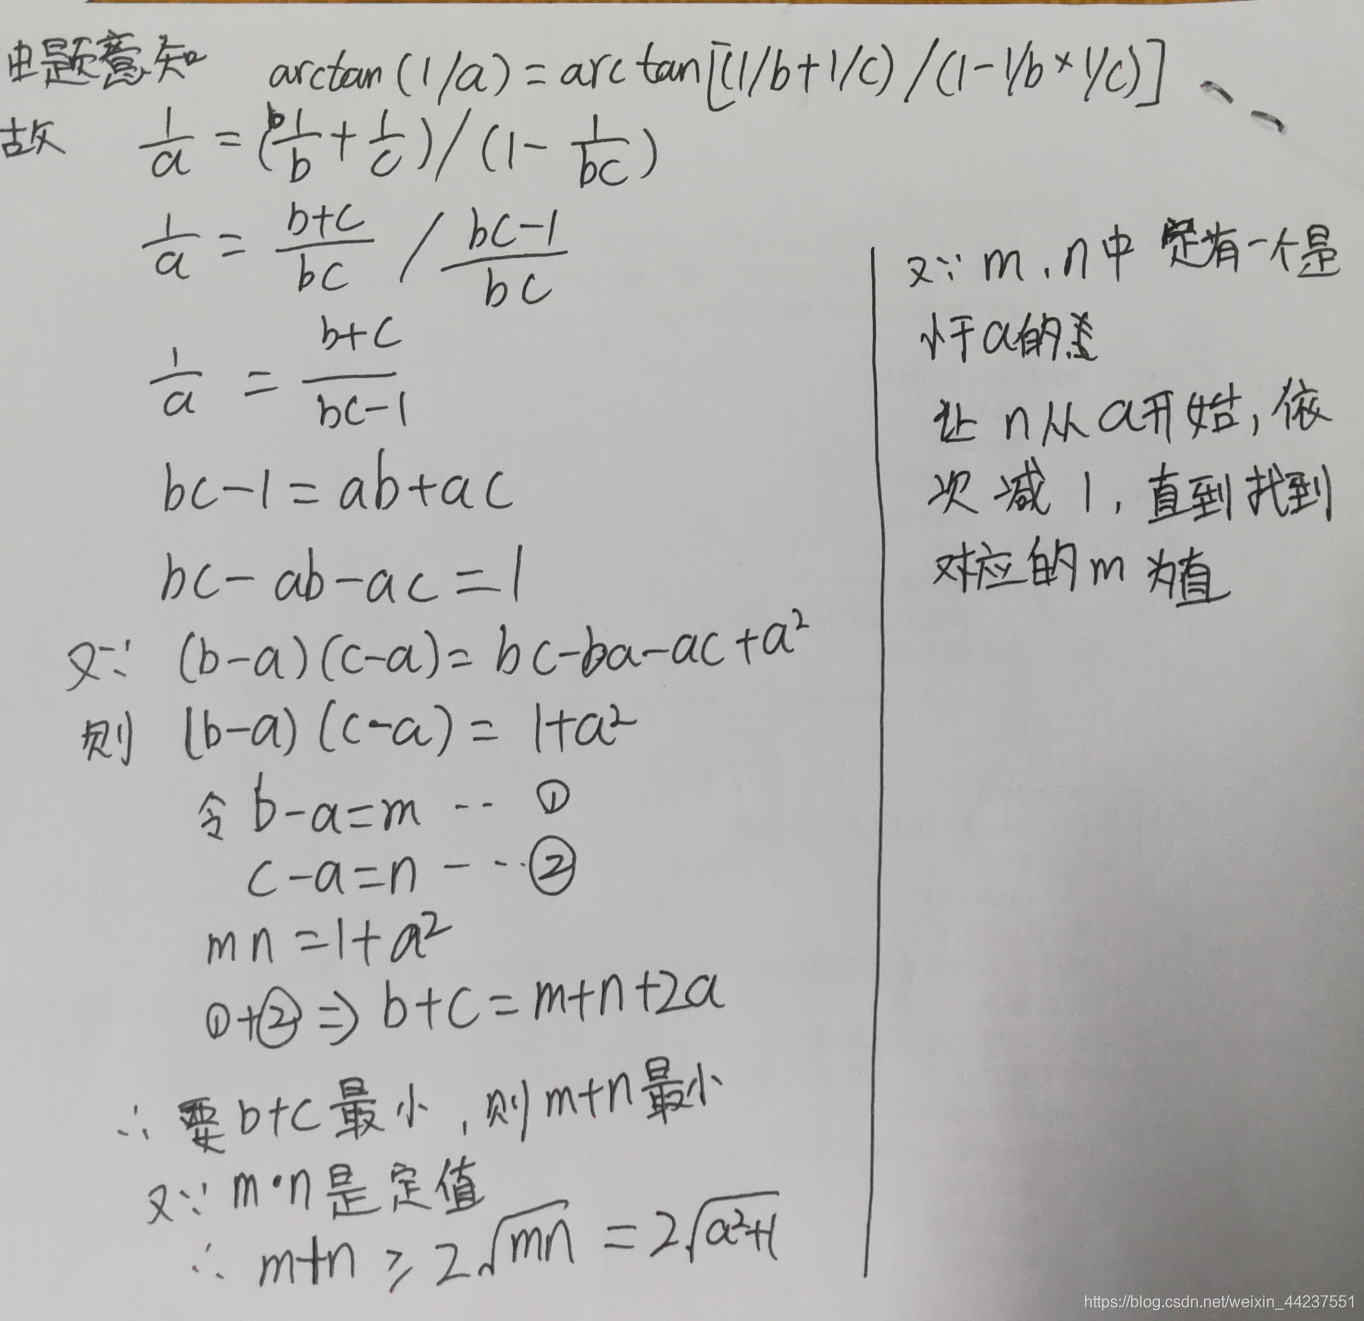 由题意知 arctan(1/a)=arctan[(1/b+1/c)/(1-1/b×1/c)]
故 1/a = (1/b+1/c)/(1-1/bc)
1/a = b+c/bc / bc-1/bc
1/a = b+c/bc-1
bc-1=ab+ac
bc-ab-ac=1
又∵ (b-a)(c-a)=bc-ba-ac+a²
则 (b-a)(c-a)=1+a²
令 b-a=m -- ①
c-a=n --- ②
mn=1+a²
①+② ⇒ b+c=m+n+2a
∴ 要b+c最小,则m+n最小
又∵ m·n是定值
∴ m+n ≥ 2√mn = 2√a²+1
又∵ m、n中定有一个是
小于a的
让 n从a开始,依
次减1,直到找到
对应的m为值
https://blog.csdn.net/weixin_44237551